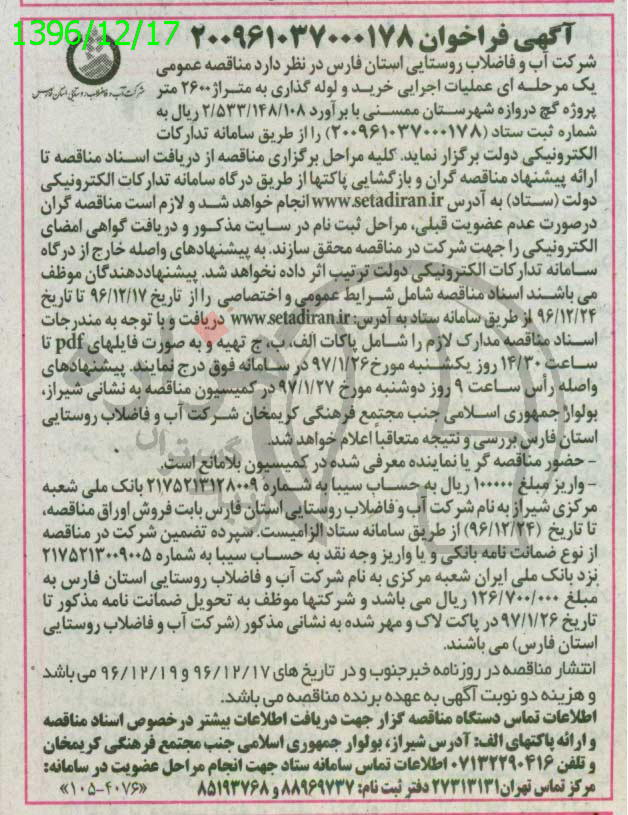 1396/12/17
آگهی فراخوان ۲۰۰۹۶۱۰۳۷۰۰۰۱۷۸
شرکت آب و فاضلاب روستایی استان فارس
شرکت آب و فاضلاب روستایی استان فارس در نظر دارد مناقصه عمومی
یک مرحله ای عملیات اجرایی خرید و لوله گذاری به متراژ ۲۶۰۰ متر
پروژه گچ دروازه شهرستان ممسنی با برآورد ۲/۵۳۳/۱۴۸/۱۰۸ ریال به
شماره ثبت ستاد (۲۰۰۹۶۱۰۳۷۰۰۰۱۷۸) را از طریق سامانه تدارکات
الکترونیکی دولت برگزار نماید. کلیه مراحل برگزاری مناقصه از دریافت اسناد مناقصه تا
ارائه پیشنهاد مناقصه گران و بازگشایی پاکتها از طریق درگاه سامانه تدارکات الکترونیکی
دولت (ستاد) به آدرس www.setadiran.ir انجام خواهد شد و لازم است مناقصه گران
درصورت عدم عضویت قبلی، مراحل ثبت نام در سایت مذکور و دریافت گواهی امضای
الکترونیکی را جهت شرکت در مناقصه محقق سازند. به پیشنهادهای واصله خارج از درگاه
سامانه تدارکات الکترونیکی دولت ترتیب اثر داده نخواهد شد. پیشنهاددهندگان موظف
می باشند اسناد مناقصه شامل شرایط عمومی و اختصاصی را از تاریخ ۹۶/۱۲/۱۷ تا تاریخ
۹۶/۱۲/۲۴ از طریق سامانه ستاد به آدرس: www.setadiran.ir دریافت و با توجه به مندرجات
اسناد مناقصه مدارک لازم را شامل پاکات الف، ب، ج تهیه و به صورت فایلهای pdf تا
ساعت ۱۴/۳۰ روز یکشنبه مورخ ۹۷/۱/۲۶ در سامانه فوق درج نمایند. پیشنهادهای
واصله رأس ساعت ۹ روز دوشنبه مورخ ۹۷/۱/۲۷ در کمیسیون مناقصه به نشانی شیراز،
بولوار جمهوری اسلامی جنب مجتمع فرهنگی کریمخان شرکت آب و فاضلاب روستایی
استان فارس بررسی و نتیجه متعاقبا اعلام خواهد شد.
- حضور مناقصه گر یا نماینده معرفی شده در کمیسیون بلامانع است.
- واریز مبلغ ۱۰۰۰۰۰ ریال به حساب سیبا به شماره ۲۱۷۵۲۱۳۱۲۸۰۰۹ بانک ملی شعبه
مرکزی شیراز به نام شرکت آب و فاضلاب روستایی استان فارس بابت فروش اوراق مناقصه،
تا تاریخ (۹۶/۱۲/۲۴) از طریق سامانه ستاد الزامیست. سپرده تضمین شرکت در مناقصه
از نوع ضمانت نامه بانکی و یا واریز وجه نقد به حساب سیبا به شماره ۲۱۷۵۲۱۳۰۰۹۰۰۵
نزد بانک ملی ایران شعبه مرکزی به نام شرکت آب و فاضلاب روستایی استان فارس به
مبلغ ۱۲۶/۷۰۰/۰۰۰ ریال می باشد و شرکتها موظف به تحویل ضمانت نامه مذکور تا
تاریخ ۹۷/۱/۲۶ در پاکت لاک و مهر شده به نشانی مذکور (شرکت آب و فاضلاب روستایی
استان فارس) می باشند.
انتشار مناقصه در روزنامه خبرجنوب و در تاریخ های ۹۶/۱۲/۱۷ و ۹۶/۱۲/۱۹ می باشد
و هزینه دو نوبت آگهی به عهده برنده مناقصه می باشد.
اطلاعات تماس دستگاه مناقصه گزار جهت دریافت اطلاعات بیشتر درخصوص اسناد مناقصه
و ارائه پاکتهای الف: آدرس شیراز، بولوار جمهوری اسلامی جنب مجتمع فرهنگی کریمخان
و تلفن ۰۷۱۳۲۲۹۰۴۱۶ اطلاعات تماس سامانه ستاد جهت انجام مراحل عضویت در سامانه:
مرکز تماس تهران ۲۷۳۱۳۱۳۱ دفتر ثبت نام: ۸۸۹۶۹۷۳۷ و ۸۵۱۹۳۷۶۸ «۱۰۵-۴۰۷۶»